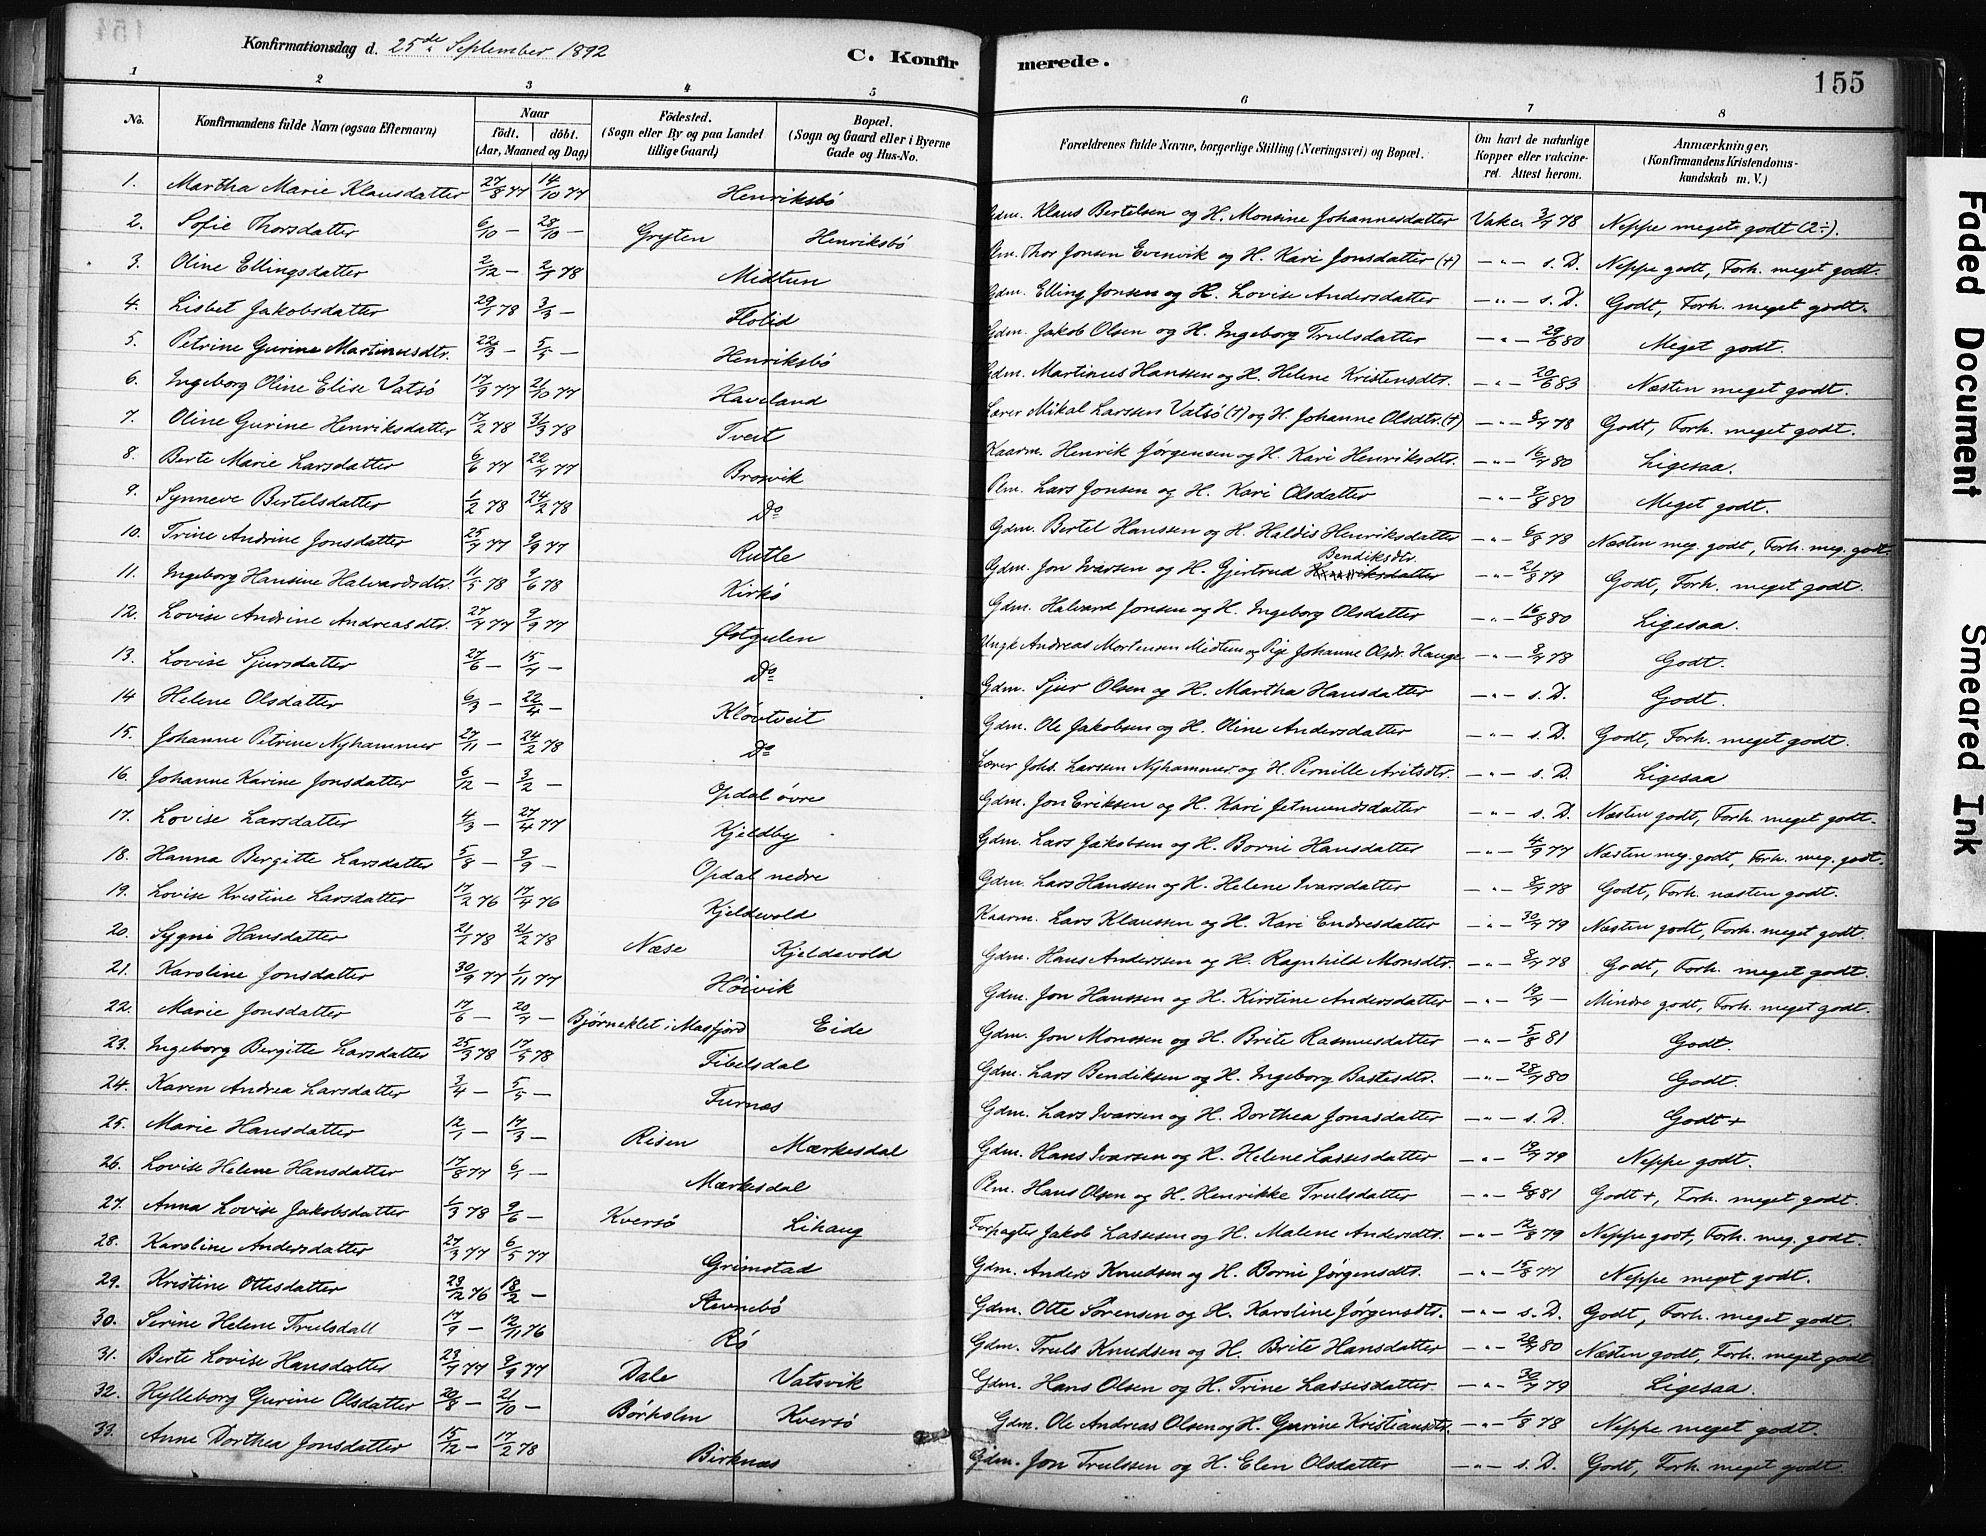 154
Konfirmationsdag d. 25de September 1892 C. Konfirmerede. 155
1 2 3 4 5 6 7 8
No. Konfirmandens fulde Navn (ogsaa Efternavn) Naar födt. döbt. (Aar, Maaned og Dag) Födested. (Sogn eller By og paa Landet tillige Gaard) Bopæl. (Sogn og Gaard eller i Byerne Gade og Hus-No. Forældrenes fulde Navne, borgerlige Stilling (Næringsvei) og Bopæl. Om havt de naturlige Kopper eller vakcineret. Attest herom. Anmærkninger. (Konfirmandens Kristendomskundskab m. V.)
1. Martha Marie Klausdatter 27/8 77 14/10 77 Henriksbö Gdm. Klaus Bertelsen og H. Monsine Johannesdatter Vakc. 3/7 78 Neppe meget godt (2÷).
2. Sofie Thorsdatter 6/10 — 28/10 — Gryten Henriksbö Plm. Thor Jonsen Evenvik og H. Kari Jonsdatter (+) —"— s. D. Neppe godt, Forh. meget godt.
3. Oline Ellingsdatter 2/12 — 2/1 78 Midtun Gdm. Elling Jonsen og H. Lovise Andersdatter —"— s. D. Godt, Forh. meget godt.
4. Lisbet Jakobsdatter 29/1 78 3/3 — Flolid Gdm. Jakob Olsen og H. Ingeborg Trulsdatter —"— 29/6 80 Meget godt.
5. Petrine Gurine Martinusdtr. 22/3 — 5/5 — Henriksbö Gdm. Martinus Hanssen og H. Helene Kristensdtr. —"— 20/6 83 Næsten meget godt.
6. Ingeborg Oline Elise Vatsö 17/9 77 21/10 77 Haveland Lærer Mikal Larssen Vatsö (+) og H. Johanne Olsdtr. (+) —"— 8/7 78 Godt, Forh. meget godt.
7. Oline Gurine Henriksdatter 17/2 78 31/3 78 Tveit Kaarm. Henrik Jørgensen og H. Kari Henriksdtr. —"— 16/7 80 Ligesaa.
8. Berte Marie Larsdatter 6/6 77 22/7 77 Brosvik Plm. Lars Jonsen og H. Kari Olsdatter —"— 9/8 80 Meget godt.
9. Synneve Bertelsdatter 1/2 78 24/2 78 Do Gdm. Bertel Hanssen og H. Haldis Henriksdatter —"— 6/8 78 Næsten meg. godt, Forh. meg. godt.
10. Trine Andrine Jonsdatter 25/7 77 9/9 77 Rutle Gdm. Jon Ivarsen og H. Gjertrud Bendiksdtr. —"— 21/8 79 Godt, Forh. meget godt.
11. Ingeborg Hansine Halvardsdtr. 11/5 78 9/6 78 Kirkö Gdm. Halvard Jonsen og H. Ingeborg Olsdatter —"— 16/8 80 Ligesaa.
12. Lovise Andrine Andreasdtr. 27/7 77 9/9 77 Østgulen Ungk. Andreas Mortensen Midtun og Pige Johanne Olsdr. Hauge —"— 8/7 78 Godt.
13. Lovise Sjursdatter 27/6 — 15/7 — Do Gdm. Sjur Olsen og H. Martha Hansdatter —"— s. D. Godt.
14 Helene Olsdatter 6/3 — 22/4 — Klövtveit Gdm. Ole Jakobsen og H. Oline Andersdatter —"— s. D. Godt, Forh. meget godt.
15. Johanne Petrine Nyhammer 27/11 — 24/2 78 Do Lærer Johs. Larsen Nyhammer og H. Pernille Aritsdtr. —"— s. D. Ligesaa
16. Johanne Karine Jonsdatter 6/12 — 3/2 — Opdal övre Gdm. Jon Eriksen og H. Kari Jetmundsdatter —"— s. D. Næsten godt, Forh. meget godt.
17. Lovise Larsdatter 4/3 — 27/4 77 Kjeldby Gdm. Lars Jakobsen og H. Borni Hansdatter —"— 4/9 77 Næsten meg. godt, Forh. meg. godt.
18. Hanna Bergitte Larsdatter 5/8 — 9/9 — Opdal nedre Gdm. Lars Hanssen og H. Helene Ivarsdatter —"— 8/7 78 Godt, Forh. næsten godt.
19. Lovise Kristine Larsdatter 17/2 76 17/4 76 Kjeldevold Kaarm. Lars Klaussen og H. Kari Endresdatter —"— 30/7 79 Næsten godt, Forh. meget godt.
20. Sygni Hansdatter 21/1 78 21/2 78 Næse Kjeldevold Gdm. Hans Anderssen og H. Ragnhild Monsdtr. —"— 8/7 78 Godt, Forh. meget godt.
21. Karoline Jonsdatter 30/9 77 1/11 77 Höivik Gdm. Jon Hanssen og H. Kirstine Andersdatter —"— 19/7 — Mindre godt, Forh. meget godt.
22. Marie Jonsdatter 17/6 — 20/7 — Bjørneklet i Masfjord Eide Gdm. Jon Monssen og H. Brite Rasmusdatter —"— 5/8 81 Godt.
23. Ingeborg Bergitte Larsdatter 25/3 78 17/5 78 Tibelsdal Gdm. Lars Bendiksen og H. Ingeborg Bastesdtr. —"— 28/7 80 Godt.
24. Karen Andrea Larsdatter 3/4 — 5/5 — Furnæs Gdm. Lars Ivarsen og H. Dorthea Jonasdatter —"— s. D. Godt +
25. Marie Hansdatter 12/1 — 17/3 — Risen Mærkesdal Gdm. Hans Ivarsen og H. Helene Lassesdatter —"— 19/7 79 Neppe godt.
26. Lovise Helene Hansdatter 17/8 77 6/1 — Mærkesdal Plm. Hans Olsen og H. Henrikke Trulsdatter —"— 6/8 81 Godt +, Forh. meget godt.
27. Anna Lovise Jakobsdatter 1/3 78 9/6 — Kversö Lihaug Forpagter Jakob Lassesen og H. Malene Andersdtr. —"— 12/8 79 Neppe godt, Forh. meg. godt.
28. Karoline Andersdatter 27/3 77 6/5 77 Grimstad Gdm. Anders Knudsen og H. Borni Jørgensdtr. —"— 15/8 77 Neppe meget godt.
29. Kristine Ottesdatter 23/12 76 18/2 — Stevnebö Gdm. Otte Sörensen og H. Karoline Jørgensdtr. —"— s. D. Godt, Forh. meget godt.
30. Serine Helene Trulsdatt 17/9 — 12/11 76 Rö Gdm. Truls Knudsen og H. Brite Hansdatter —"— 29/7 80 Næsten godt, Forh. meget godt
31. Berte Lovise Hansdatter 23/7 77 9/9 77 Dale Vatsvik Gdm. Hans Olsen og H. Trine Lassesdatter. —"— 30/7 79 Ligesaa.
32. Hylleborg Gurine Olsdatter 20/8 — 21/10 — Börholm Kversö Gdm. Ole Andreas Olsen og H. Gurine Kristiansdtr. —"— 1/8 78 Neppe meget godt.
33. Anne Dorthea Jonsdatter 15/12 — 17/2 78 Birknæs Gdm. Jon Trulssen og H. Elen Olsdatter —"— s. D. Godt, Forh. meget godt.
Faded Document
Smeared Ink